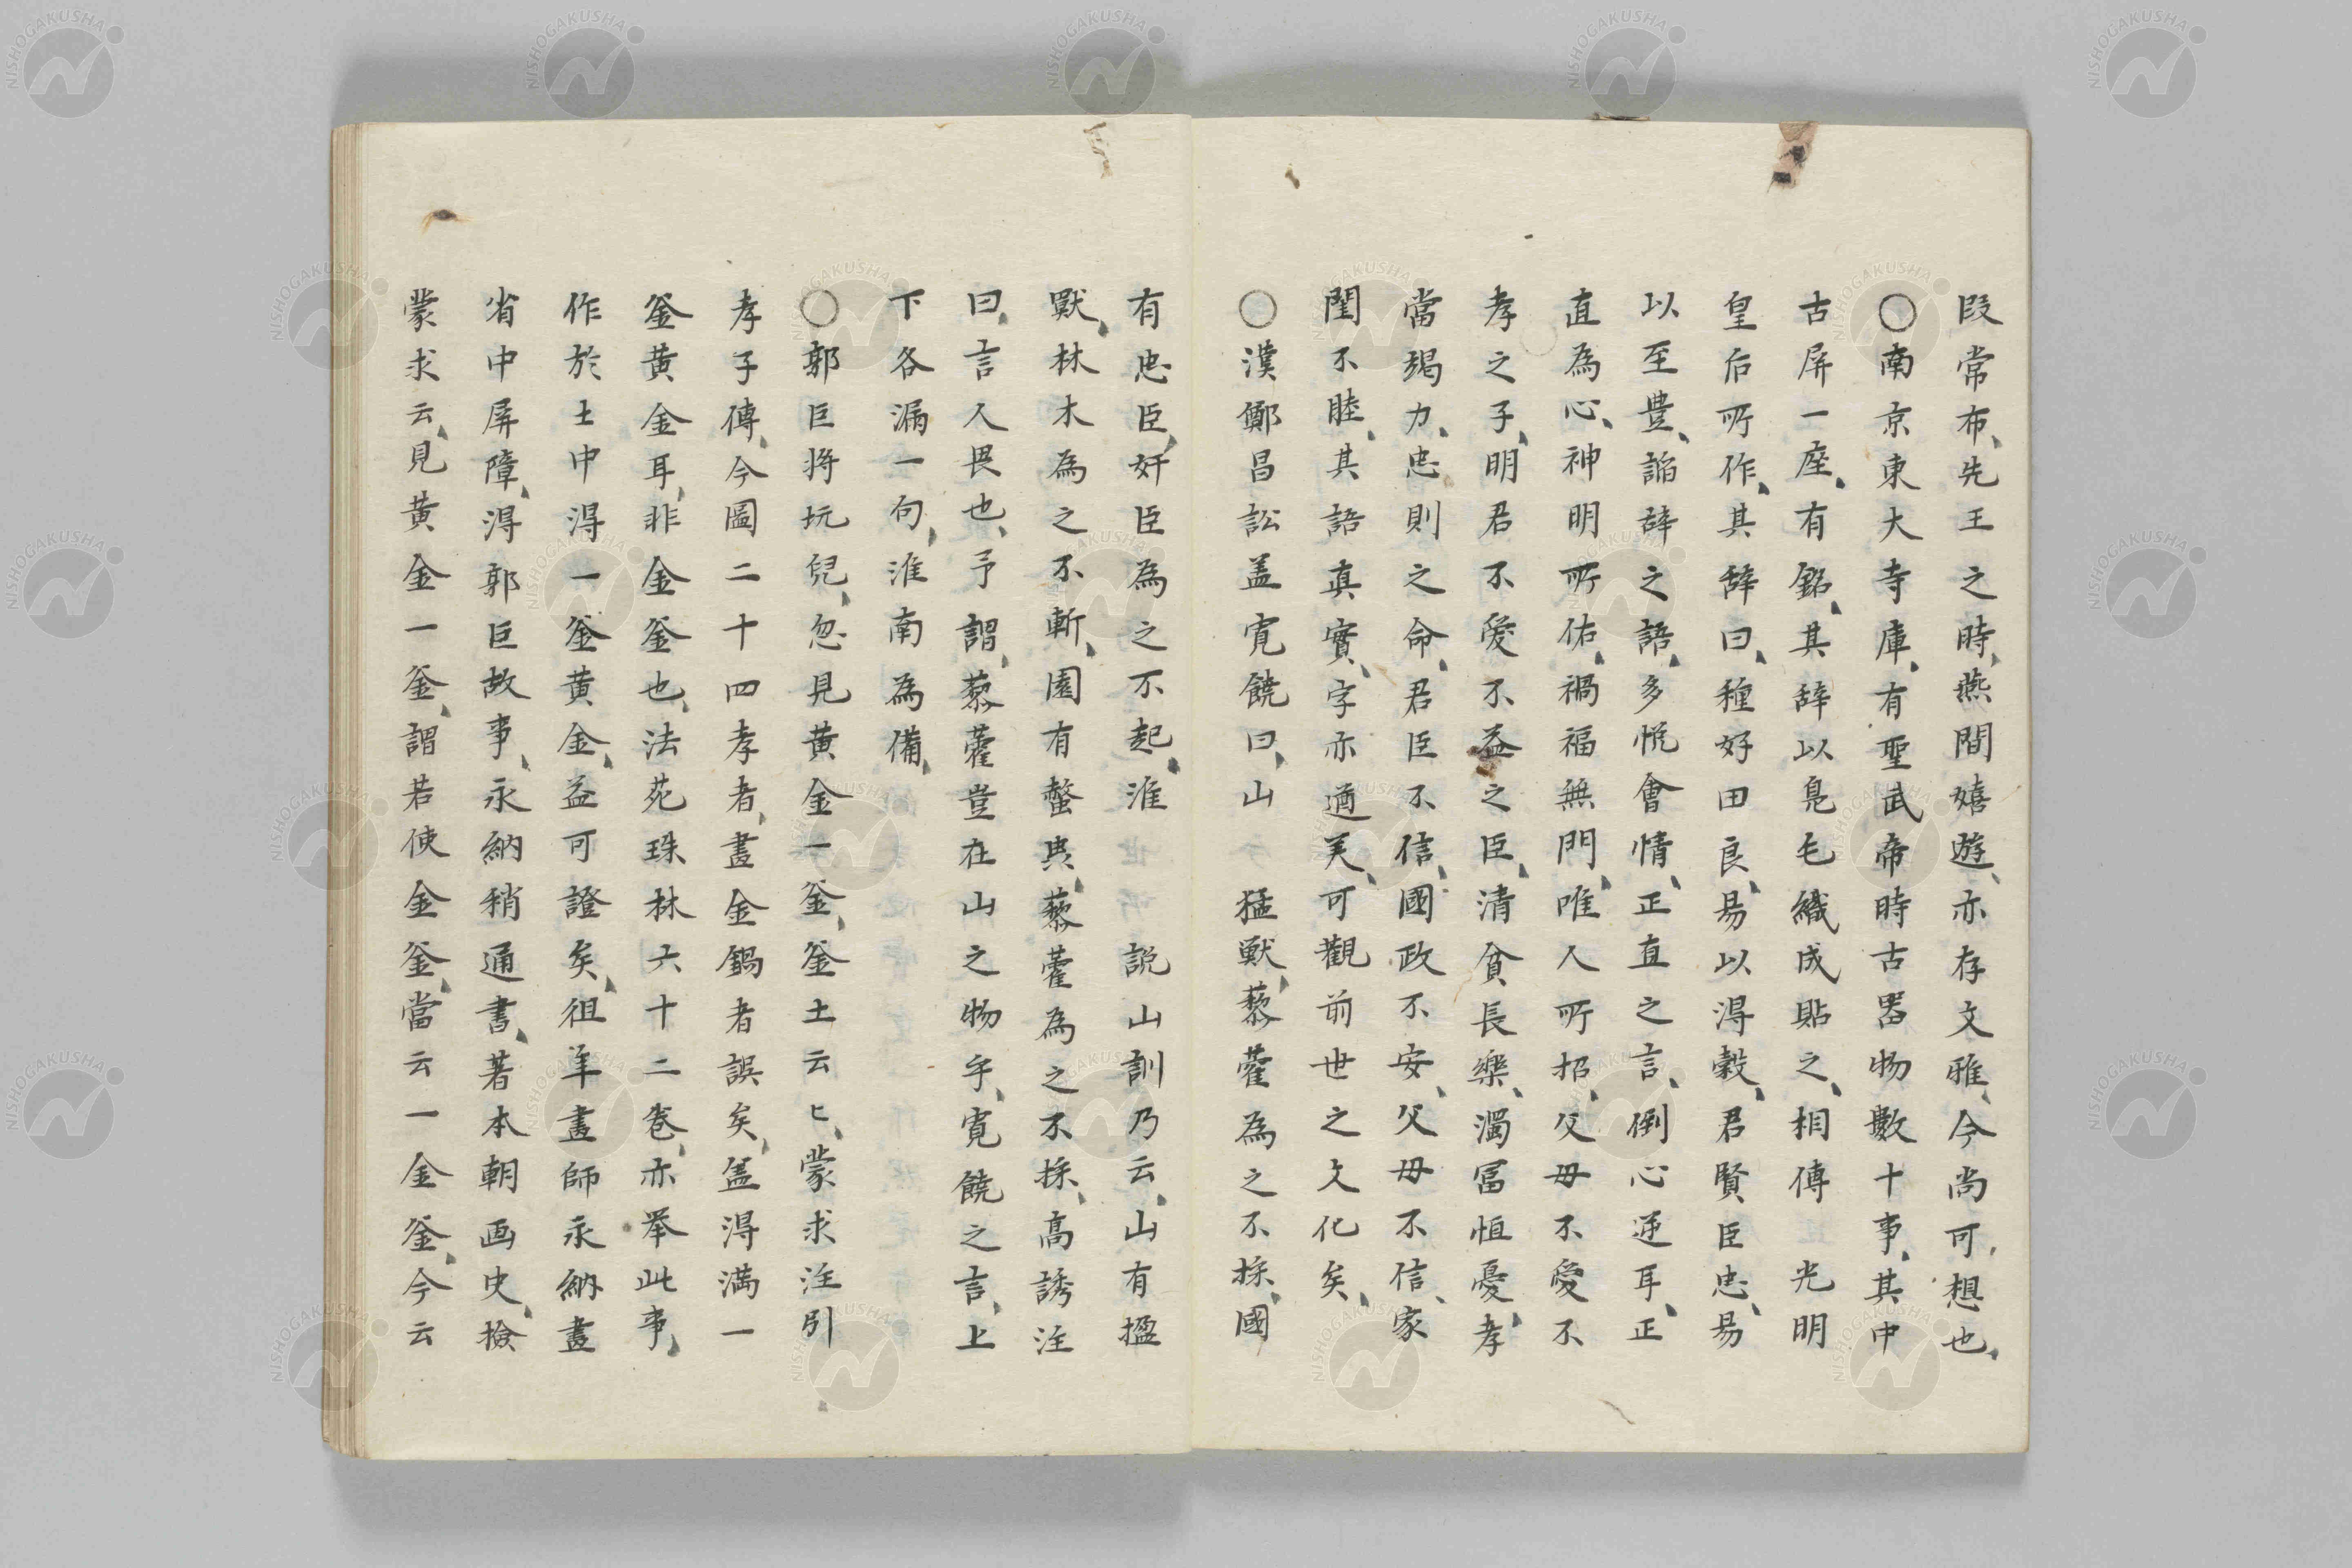 段常布、先王之時、燕間嬉遊、亦存文雅、今尚可想也、
○南京東大寺庫、有聖武帝時古器物數十事、其中
古屏一座、有銘、其辞以鳬毛織成貼之、相傳光明
皇后所作、其辞曰、種好田良、易以得穀、君賢臣忠、易
以至豊、諂辞之語、多悦會情、正直之言、倒心逆耳、正
直為心、神明所佑、禍福無門、唯人所招、父母不愛不
孝之子、明君不愛不益之臣、清貧長樂、濁冨恒憂、孝
當竭力、忠則之命、君臣不信、國政不安、父母不信、家
閨不睦、其語真實、字亦遒美、可觀前世之文化矣、
○漢鄭昌訟盖寛饒曰、山 猛獣、藜藿為之不採、國
有忠臣、奸臣為之不起、淮 説山訓乃云、山有猛
獸、林木為之不斬、園有螫虫、藜藿為之不採、高誘注
曰、言人畏也、予謂、藜藿豈在山之物乎、寛饒之言、上
下各漏一句、淮南為備、
○郭巨将坑兒、忽見黄金一釜、釜土云ヒ、蒙求注引
孝子傳、今圖二十四孝者、畫金鍋者誤矣、盖淂満一
釜黄金耳、非金釜也、法苑珠林六十二巻、亦举此事、
作於土中淂一釜黄金、益可證矣、徂羊畫師永納畫
省中屏障、淂郭巨故事、永納稍通書、著本朝画史、撿
蒙求云、見黄金一釜、謂若使金釜、當云一金釜、今云